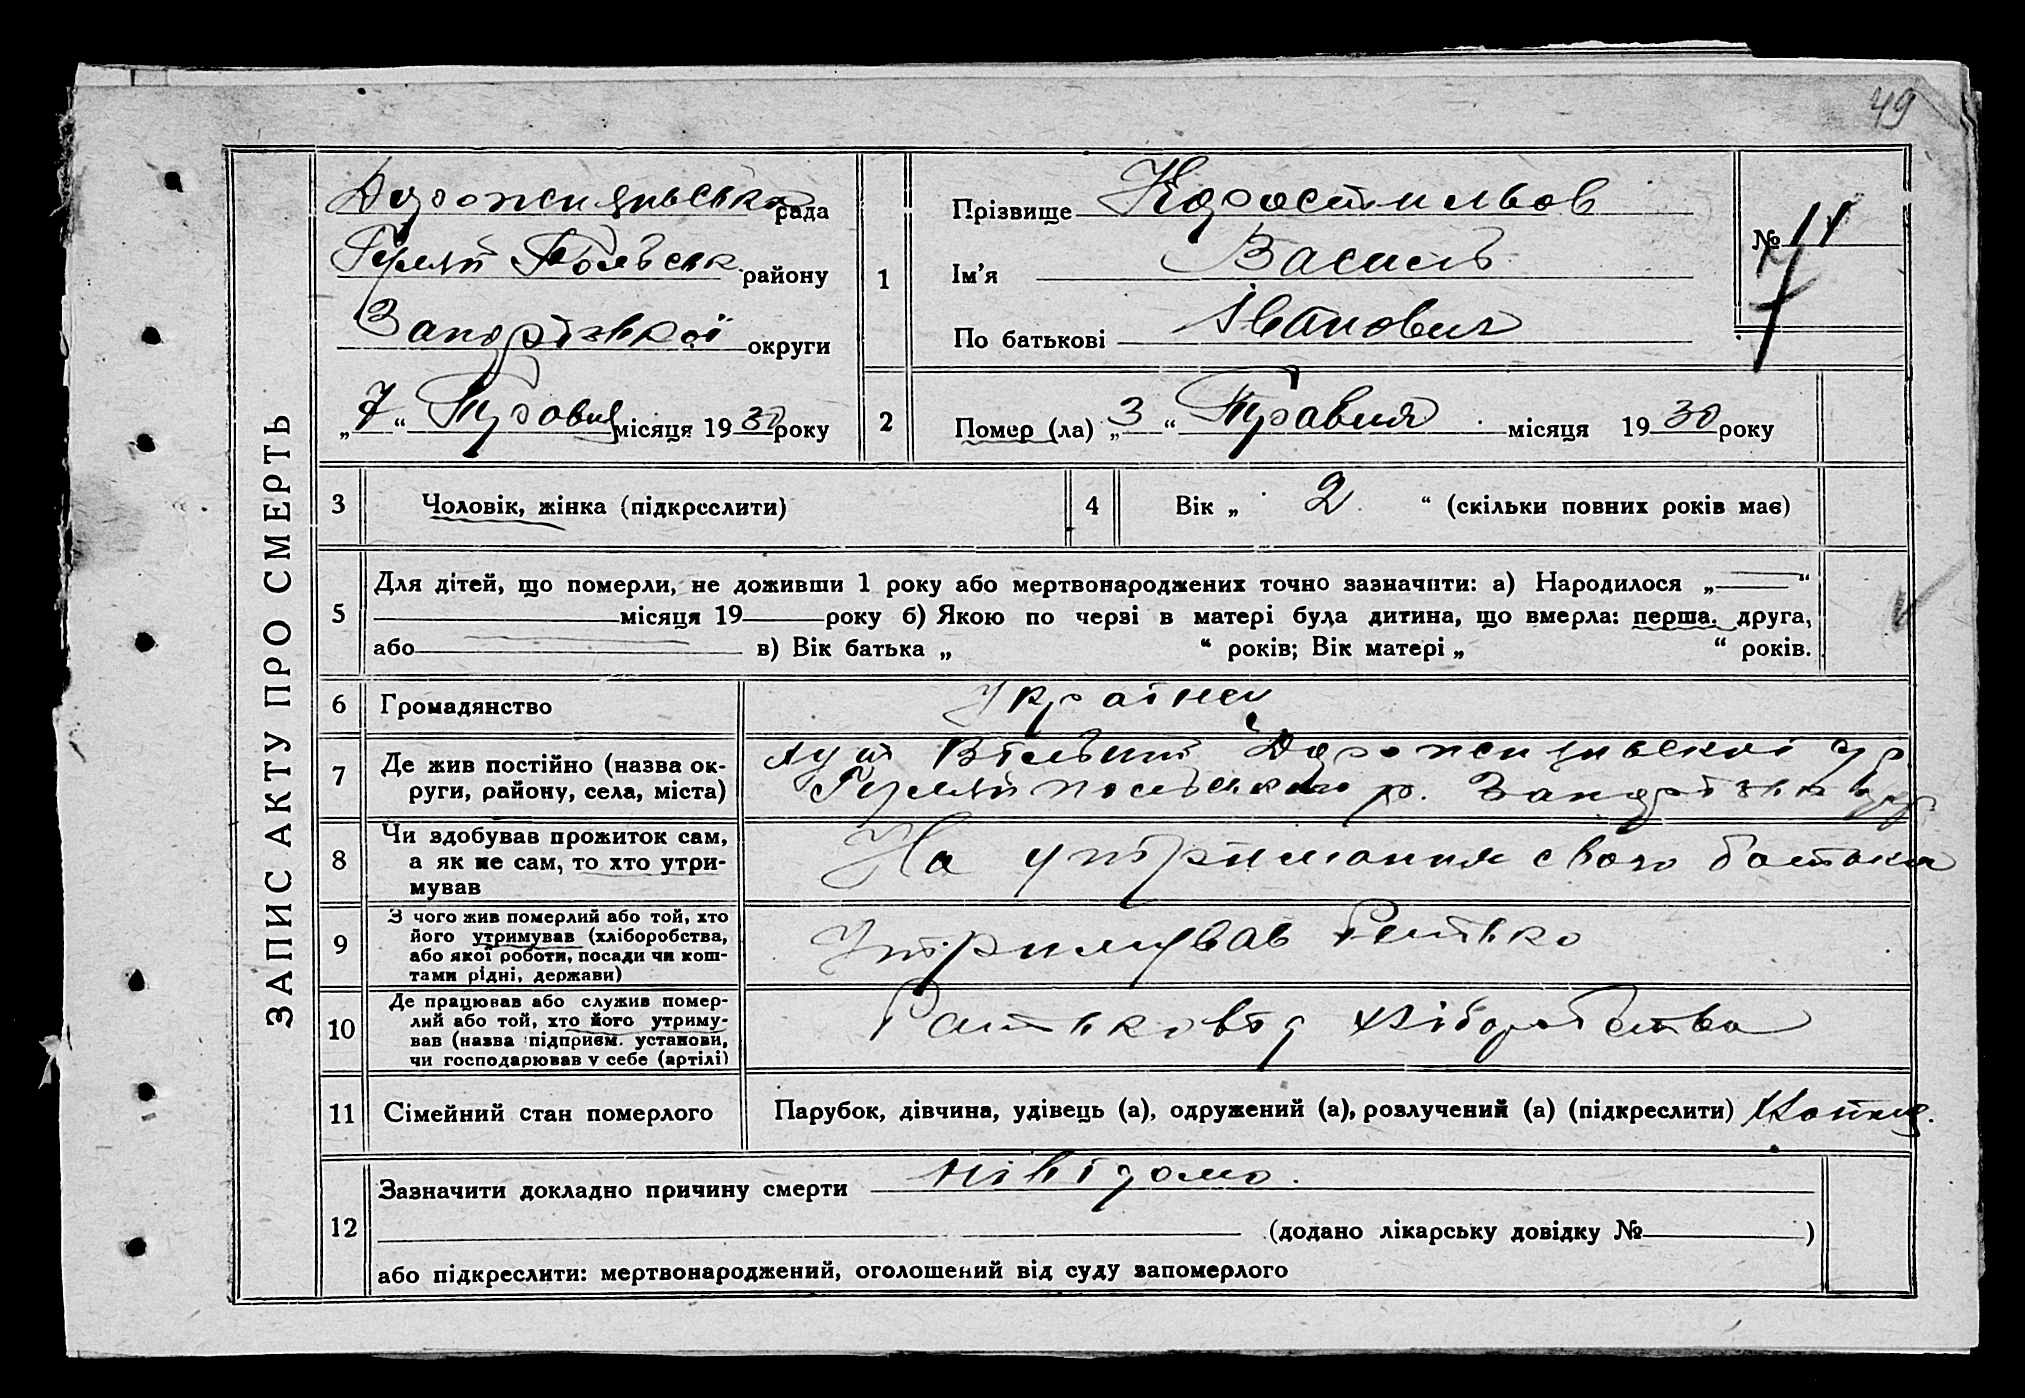 49
ЗАПИС АКТУ ПРО СМЕРТЬ
Дорожнянська рада
Гуляй Польськ. району
Запорізької округи
„7“ Травня місяця 1930 року
1
Прізвище Коростильов
Ім’я Василь
По батькові Іванович
№ 11
7
2 Помер (ла) „3“ Травня місяця 1930 року
3 Чоловік, жінка (підкреслити)
4 Вік „ 2 “ (скільки повних років має)
5 Для дітей, що померли, не доживши 1 року або мертвонароджених точно зазначити: а) Народилося „ “
місяця 19 року б) Якою по черзі в матері була дитина, що вмерла: перша, друга,
або в) Вік батька „ “ років; Вік матері „ “ років.
6 Громадянство
7 Де жив постійно (назва ок-
руги, району, села, міста)
Дорожнянської
Гуляйпольського р. Запорізьк
8 Чи здобував прожиток сам,
а як не сам, то хто утри-
мував
На утримання свого батька
9 З чого жив померлий або той, хто
його утримував (хліборобства,
або якої роботи, посади чи кош-
тами рідні, держави)
Утримував батько
10 Де працював або служив помер-
лий або той, хто його утриму-
вав (назва підприєм. установи,
чи господарював у себе (артілі)
хліборобства
11 Сімейний стан померлого Парубок, дівчина, удівець (а), одружений (а), розлучений (а) (підкреслити)
12 Зазначити докладно причину смерти невідомо.
(додано лікарську довідку № )
або підкреслити: мертвонароджений, оголошений від суду запомерлого